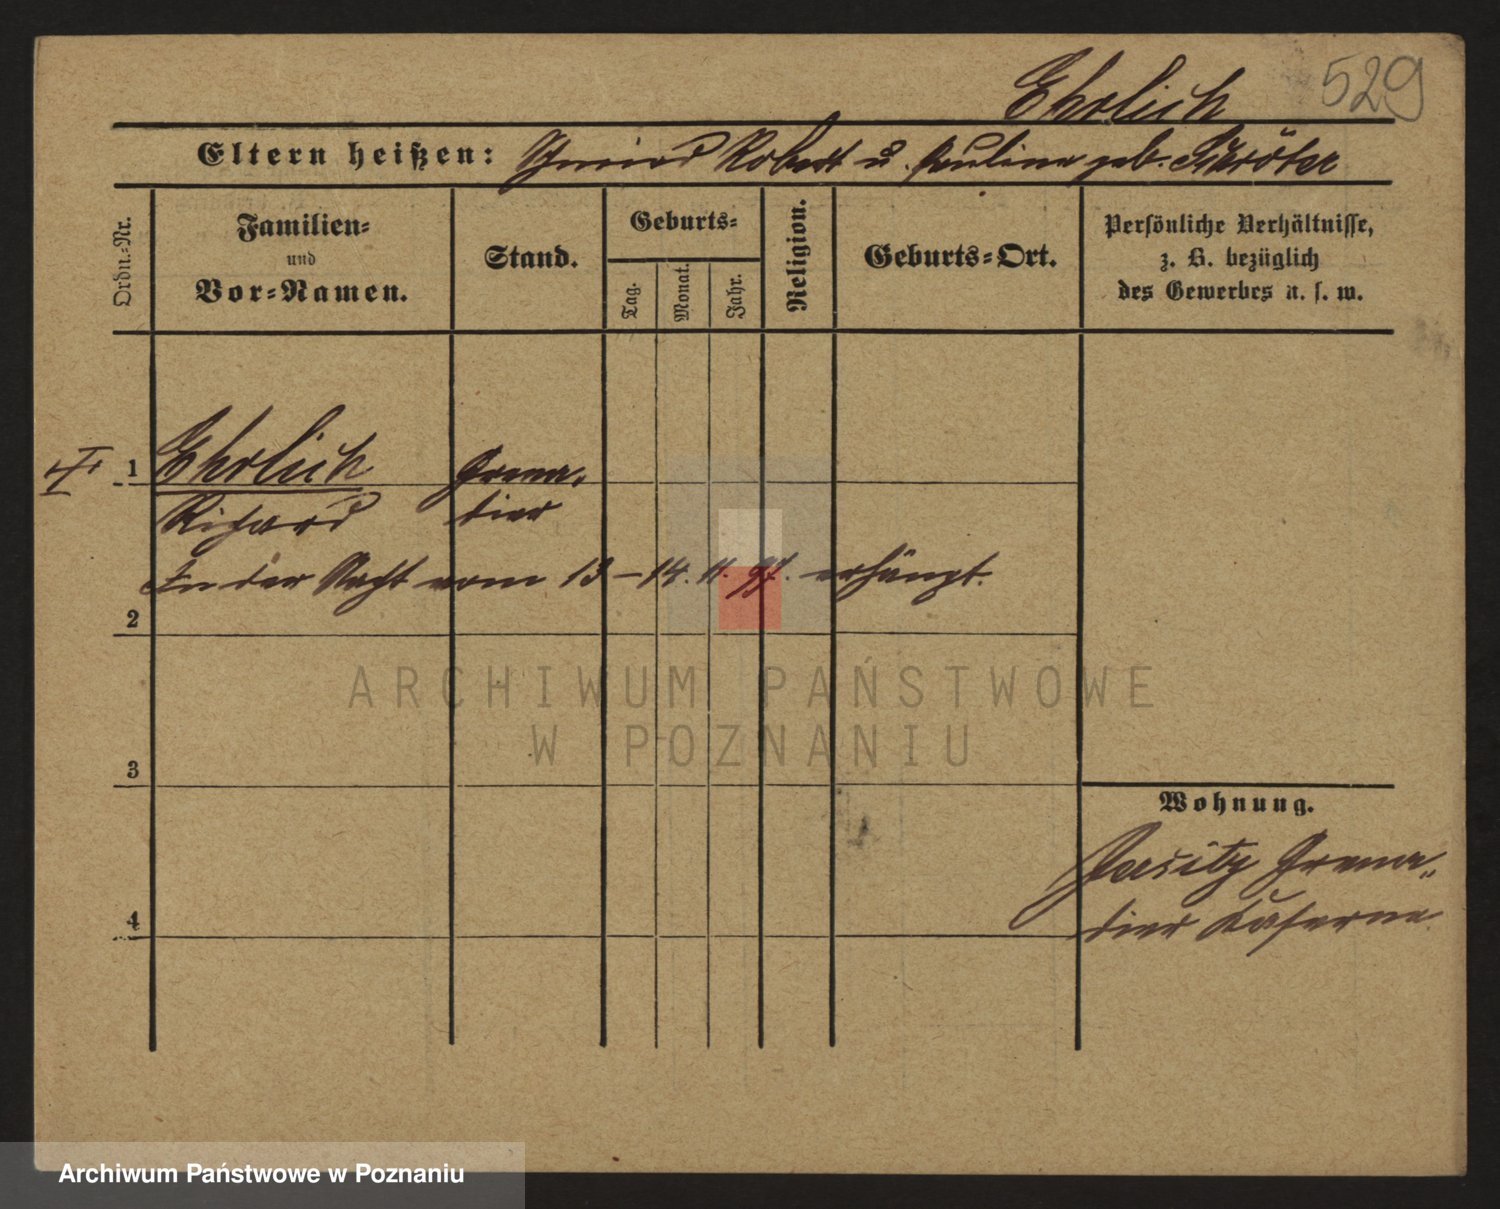 529
Ehrlich
Eltern heißen: Robert u. Pauline geb. Schröter
Ordn.-Nr.
Familien-
und
Vor-Namen.
Stand.
Geburts-
Tag.
Monat.
Jahr.
Religion.
Geburts-Ort.
Persönliche Verhältnisse,
z. B. bezüglich
des Gewerbes u. s. w.
1 Ehrlich Grena-
Richard dier
In der Nacht vom 13-14. 11. 97. erhängt.
2
ARCHIWUM PAŃSTWOWE
W POZNANIU
3
Wohnung.
Jersitz Grena-
dier Kaserne
4
Archiwum Państwowe w Poznaniu